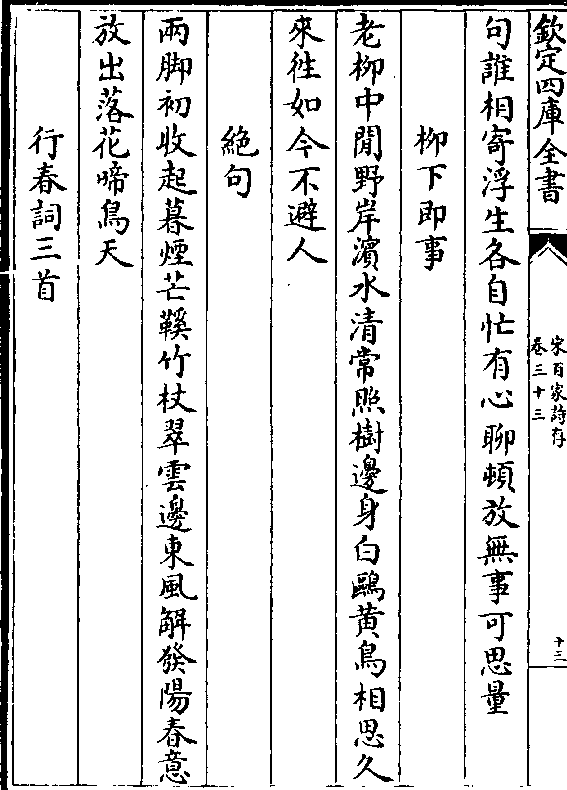 欽定四庫全書
宋百家詩存
卷三十三
十三
句誰相寄浮生各自忙有心聊頓放無事可思量
柳下即事
老柳中閒野岸濱水清常照樹邊身白鷗黄鳥相思久
來徃如今不避人
絶句
兩脚初收起暮煙芒鞵竹杖翠雲邊東風解發陽春意
放出落花啼鳥天
行春詞三首